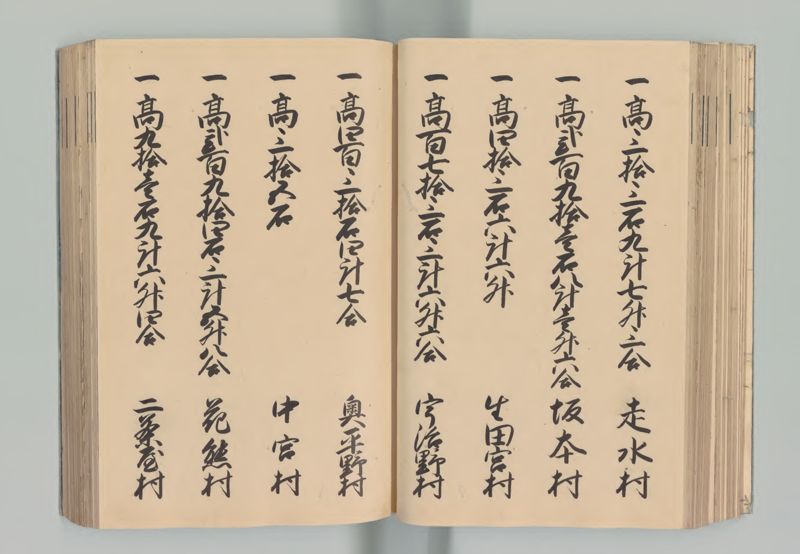 一 高三拾三石九斗七升三合 走水村
一 高弐百九拾壱石八斗壱升六合 坂本村
一 高四拾三石六斗六升 生田宮村
一 高百七拾三石三斗六升六合 宇治野村
一 高四百三拾石四斗七合 奥平野村
一 高三拾五石 中宮村
一 高弐百九拾四石三斗五升八合 花熊村
一 高九拾壱石九斗六升四合 二茶屋村